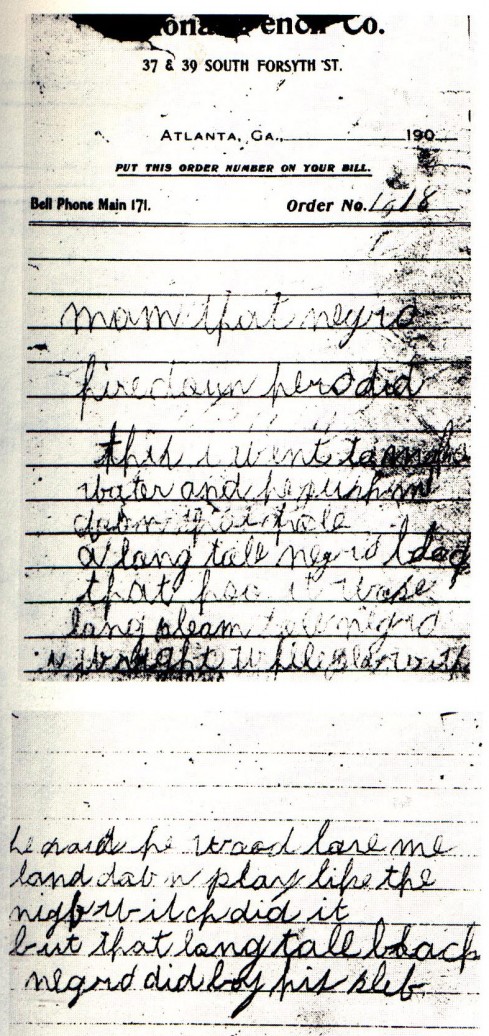 Pencil Co.
37 & 39 SOUTH FORSYTH ST.
ATLANTA, GA., 190
PUT THIS ORDER NUMBER ON YOUR BILL.
Bell Phone Main 171. Order No. 1018
mam that negro
hire down here did
this i went to make
water and he push me
down that hole
a long tall negro black
that hoo it wase
long sleam tall negro
i wright while play with
he said he wood love me
land dab n play like the
night witch did it
but that long tall black
negro did boy his slef